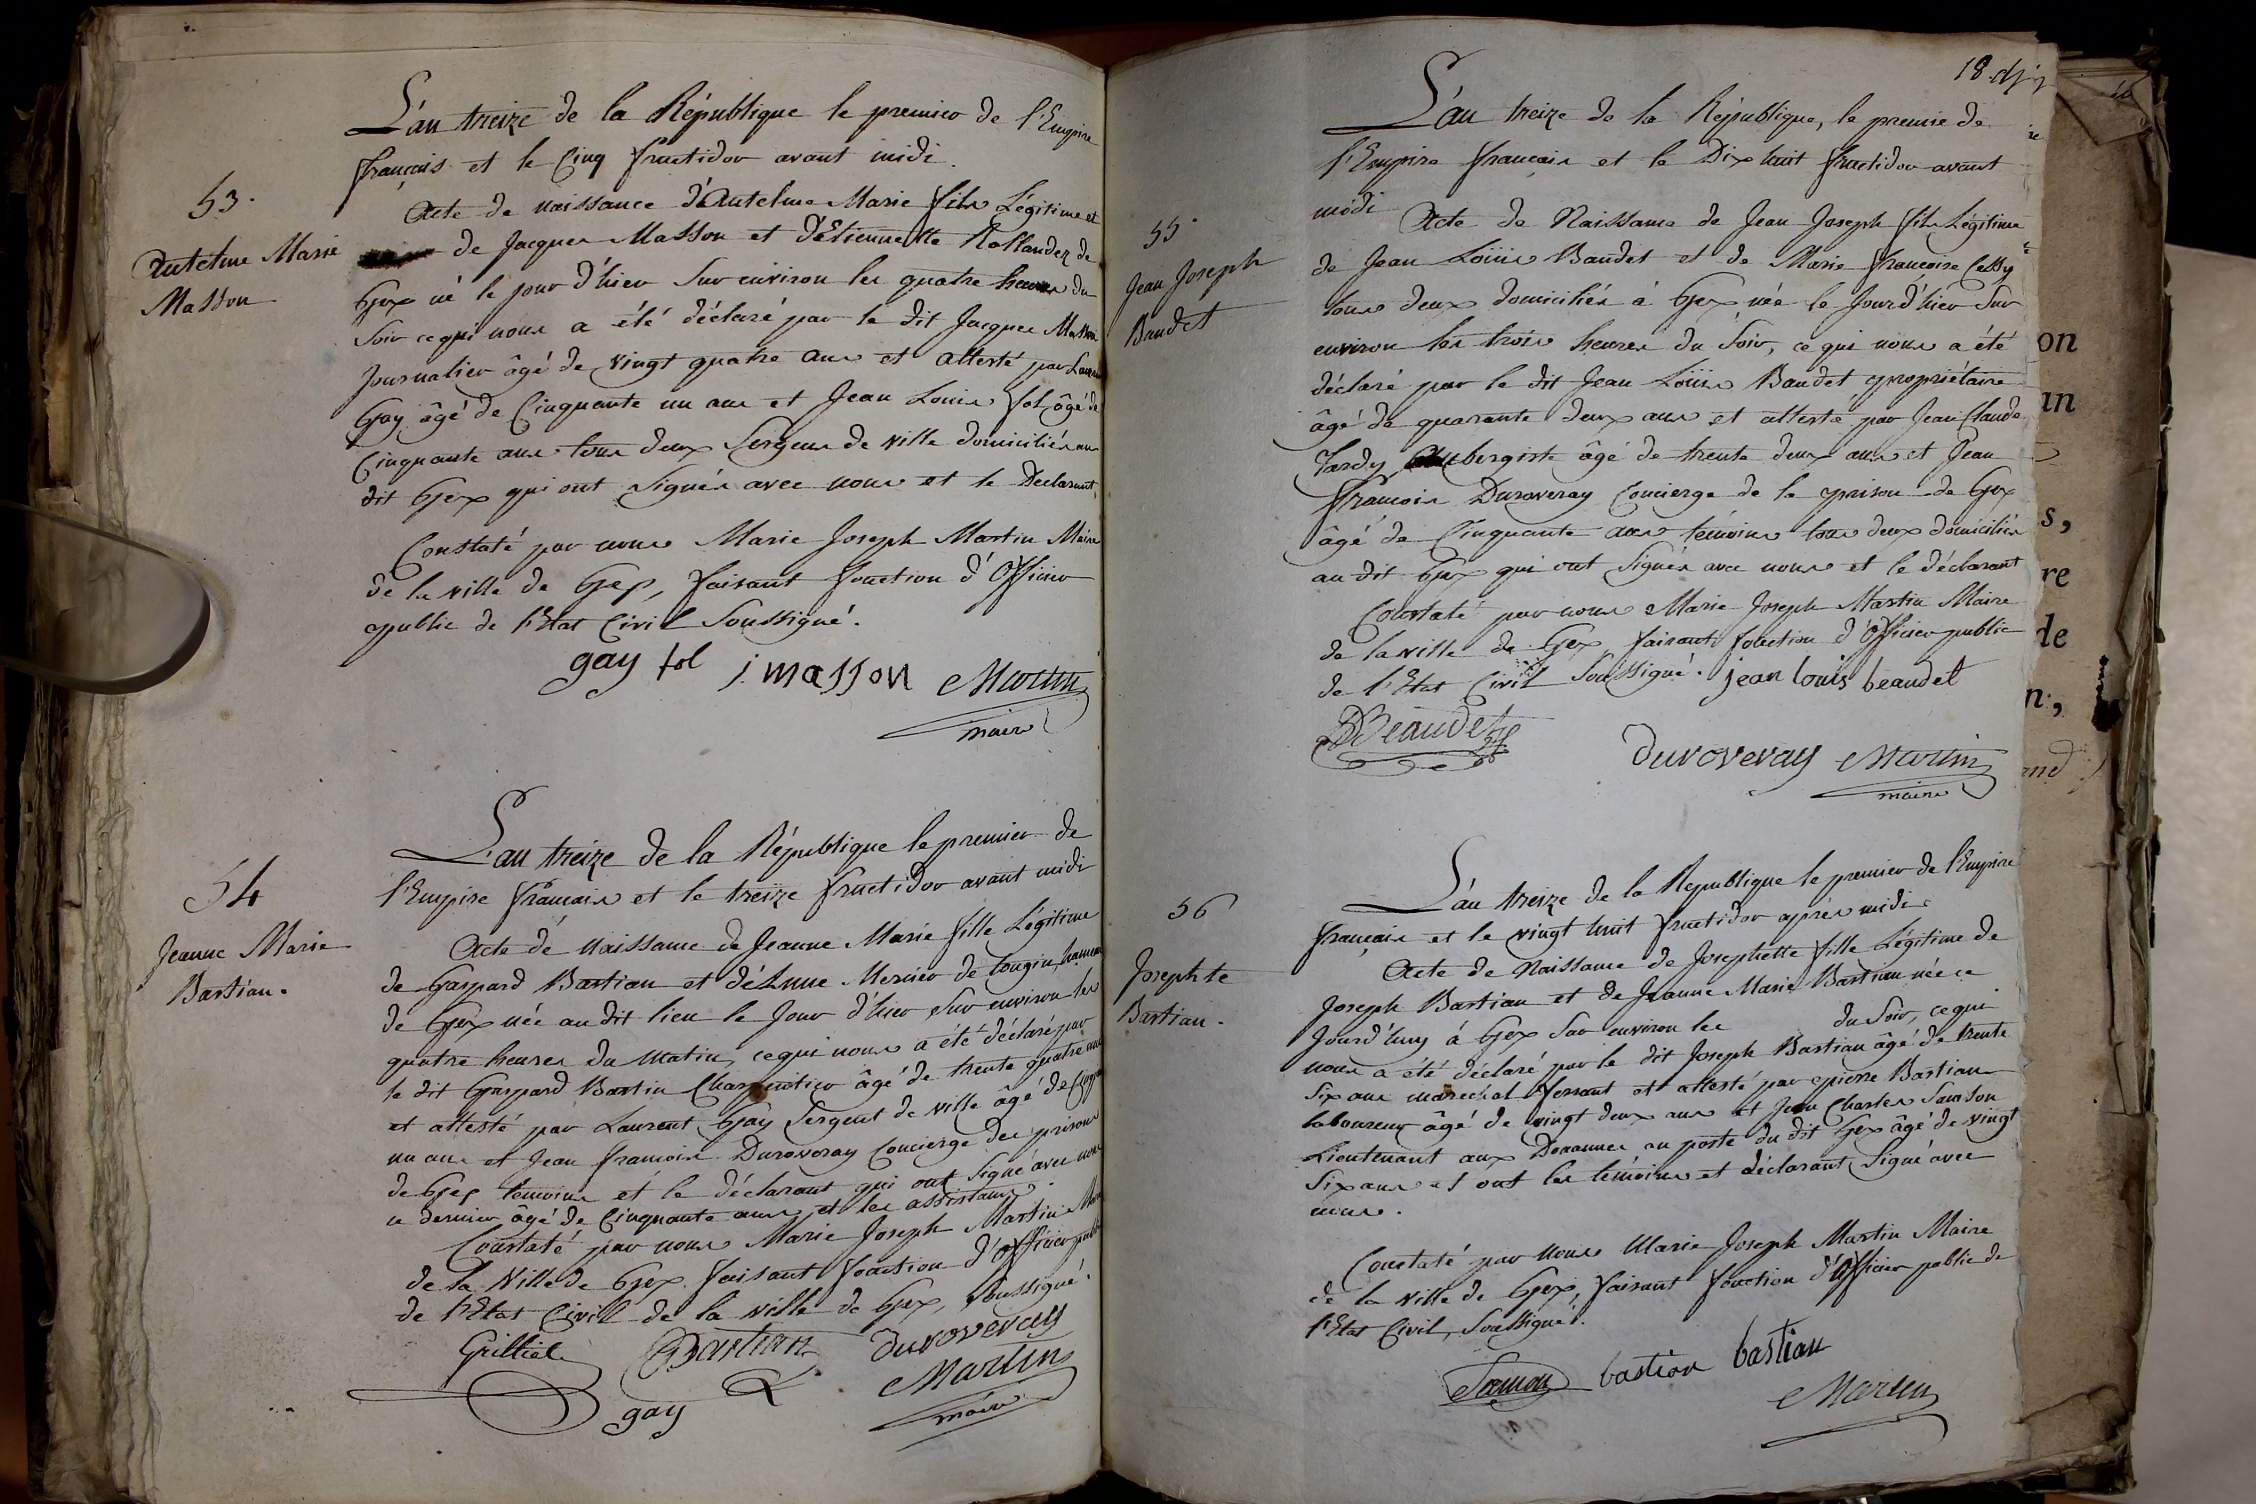 L'an treize de la République le premier de l'Empire
français et le Cinq fructidor avant midi.
53.
Antelme Marie
Masson
Acte de naissance d'Antelme Marie fils Légitime et
de Jacques Masson et d'Etiennette Rollandez de
Gex né le jour d'hier Sur environ les quatre heures du
Soir ce qui nous a été déclaré par le dit Jacques Masson
Journalier âgé de vingt quatre ans et attesté par Laurent
Gay âgé de Cinquante un ans et Jean Louis fol âgé de
Cinquante ans tous deux Sergens de ville domiciliés au
dit Gex qui ont Signés avec nous et le Déclarant.
Constaté par nous Marie Joseph Martin Maire
de la ville de Gex, faisant fonction d'Officier
public de l'Etat Civil Soussigné.
gay fol j. masson Martin
maire
L'an treize de la République le premier de
l'Empire français et le treize fructidor avant midi
54
Jeanne Marie
Bastian.
Acte de naissance de Jeanne Marie fille Légitime
de Gaspard Bastian et d'Anne Mercier de tougin, hameau
de Gex née au dit lieu le Jour d'hier Sur environ les
quatre heures du matin, ce qui nous a été déclaré par
le dit Gaspard Bastin Charpentier âgé de trente quatre ans
et attesté par Laurent Gay Sergent de ville âgé de Cinquante
un ans et Jean francois Duroveray Concierge des prisons
de Gex temoins et le déclarant qui ont Signé avec nous
ce dernier âgé de Cinquante ans et les assistans.
Constaté par nous Marie Joseph Martin Maire
de la Ville de Gex faisant fonction d'officier public
de l'Etat Civil de la ville de Gex, soussigné.
Bastian duroveray
gay Martin
maire
18
L'an treize de la République, le premie de
l'Empire français et le Dix huit fructidor avant
midi
55.
Jean Joseph
Baudet
Acte de Naissance de Jean Joseph fils Légitime
de Jean Loüis Baudet et de Marie francoise Cessy
tous deux domiciliés à Gex née le Jour d'hier Sur
environ les trois heures du Soir, ce qui nous a été
déclaré par le dit Jean Loüis Baudet propriétaire
âgé de quarante deux ans et attesté par Jean Claude
Tardy Aubergiste âgé de trente deux ans et Jean
francois Duroveray Concierge de la prison de Gex
âgé de Cinquante ans témoins tous deux domiciliés
au dit Gex qui ont Signés avec nous et le déclarant
Constaté par nous Marie Joseph Martin Maire
de la ville de Gex, faisant fonction d'Officier public
de l'Etat Civil Soussigné. jean louis beaudet
Beaudet
duroveray Martin
maire
L'an treize de la Republique le premier de l'Empire
français et le vingt huit fructidor après midi
56
Josephte
Bastian.
Acte de Naissance de Josephette fille Légitime de
Joseph Bastian et de Jeanne Marie Bastian née ce
Jourd'huy à Gex Sur environ les du Soir, ce qui
nous a été déclaré par le dit Joseph Bastian âgé de trente
Six ans maréchal ferrant et attesté par pierre Bastian
laboureur âgé de vingt deux ans et Jean Charles Samson
Lieutenant aux Douannes au poste du dit Gex âgé de vingt
Six ans et ont les témoins et déclarant Signé avec
nous.
Constaté par Nous Marie Joseph Martin Maire
de la ville de Gex, faisant fonction d'Officier public de
l'Etat Civil, Soussigné.
Samson bastian bastian
Martin
on
un
s,
re
de
n,